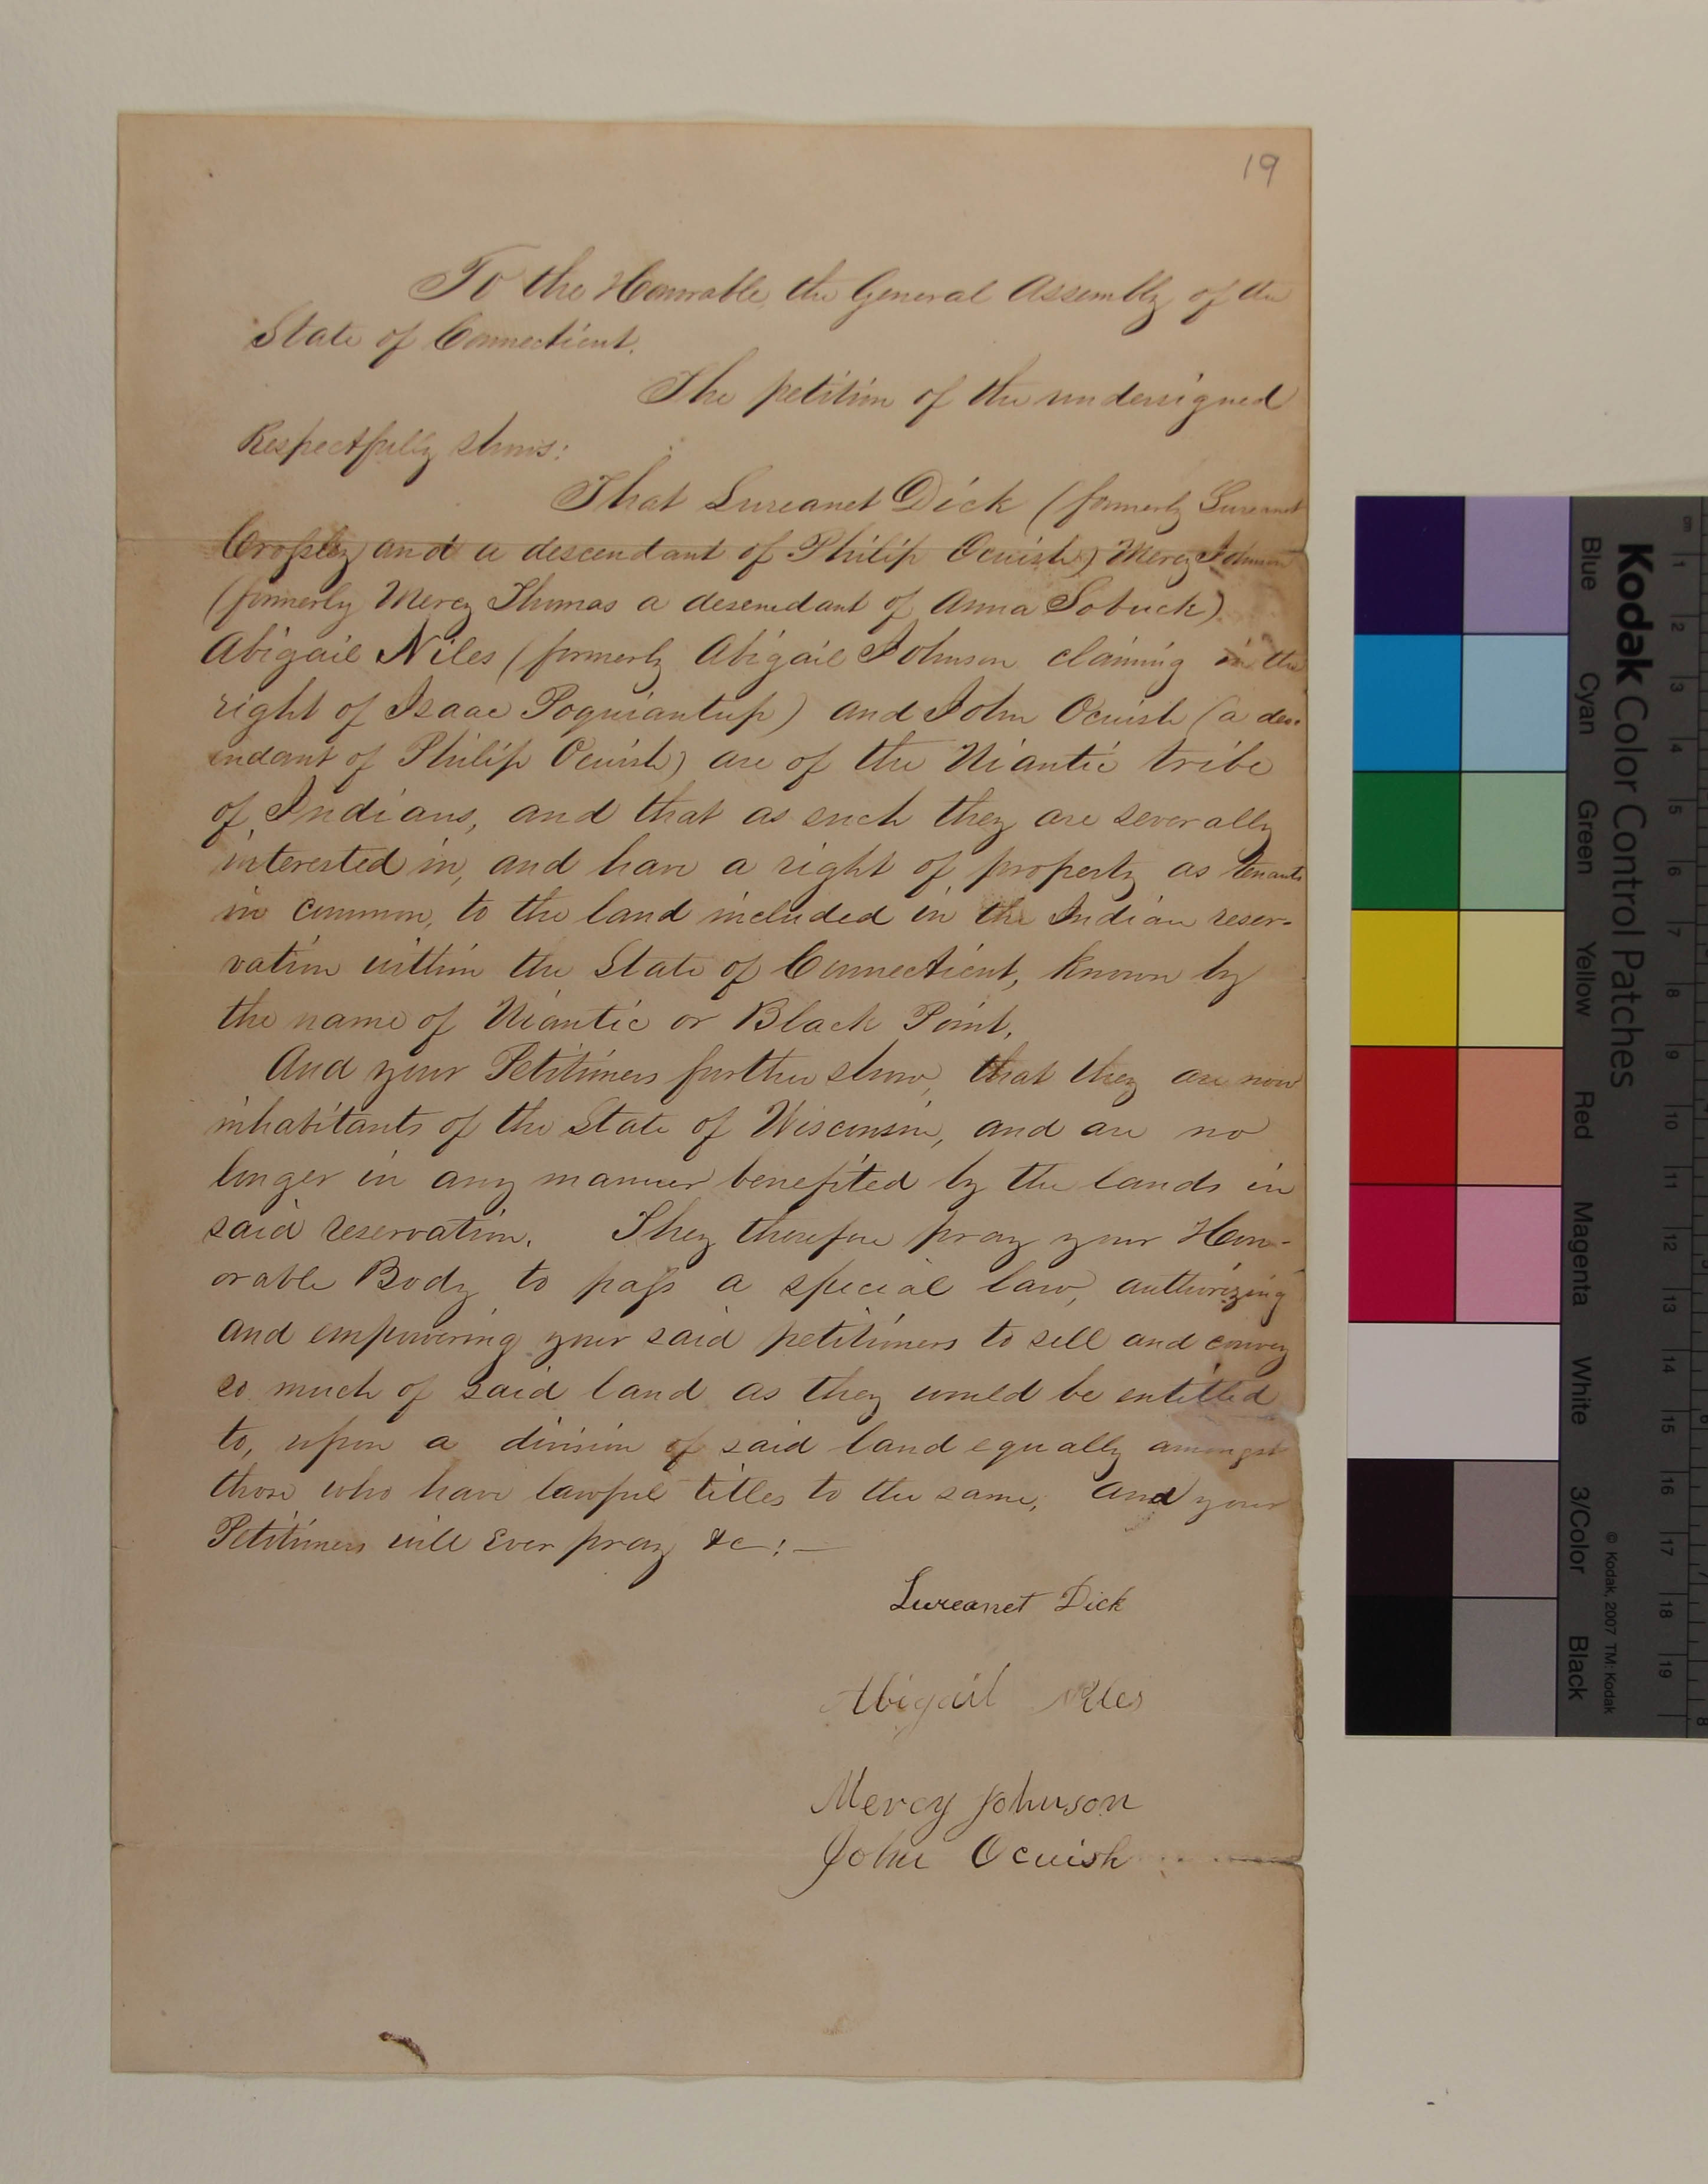 19
To the Honorable, the General Assembly of the
State of Connecticut.
The petition of the undersigned
Respectfully shows:
That Lureanet Dick (formerly Lureanet
Crossley and a descendant of Philip Ocuish) Mercy Johnson
(formerly Mercy Thomas a desendant of Anna Sobuck)
Abigail Niles (formerly Abigail Johnson claiming in the
right of Isaac Poquiantup) and John Ocuish (a des-
endant of Philip Ocuish) are of the Niantic tribe
of Indians, and that as such they are severally
interested in, and have a right of property as tenants
in common, to the land included in the Indian reser-
vation within the State of Connecticut, known by
the name of Niantic or Black Point.
And your Petitioners further show, that they are now
inhabitants of the State of Wisconsin, and are no
longer in any manner benefited by the lands in
said reservation. They therefore pray your Hon-
orable Body to pass a special law, authorizing
and empowering your said petitioners to sell and convey
so much of said land as they would be entitled
to, upon a division of said land equally amongst
those who have lawful titles to the same, And your
Petitioners will Ever pray &c:—
Lureanet Dick
Abigail Niles
Mercy Johnson
John Ocuish
Kodak Color Control Patches
Blue Cyan Green Yellow Red Magenta White 3/Color Black
© Kodak, 2007 TM: Kodak
cm 1 2 3 4 5 6 7 8 9 10 11 12 13 14 15 16 17 18 19